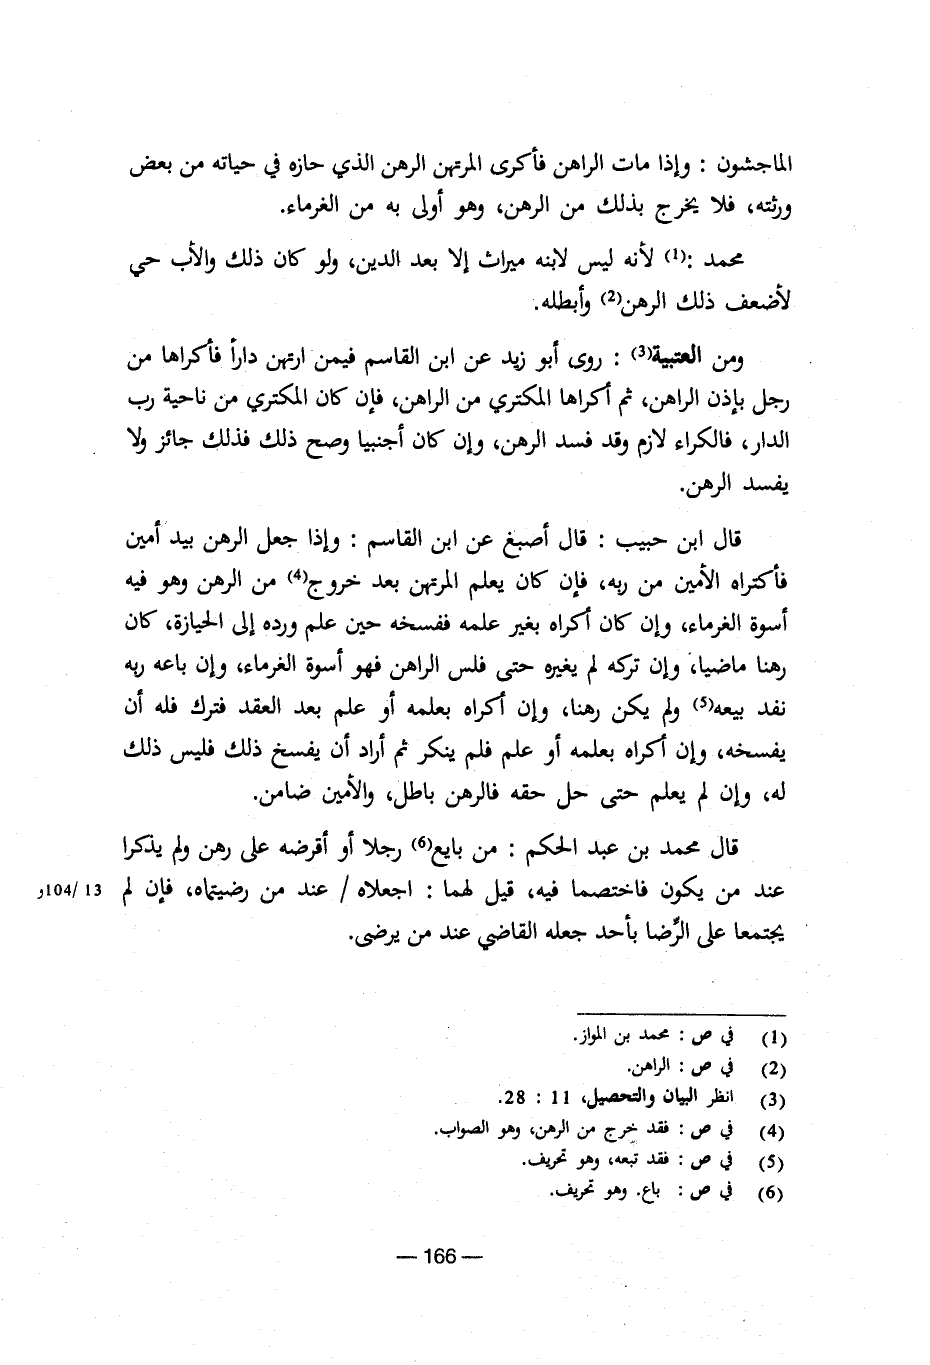 الماجشون : وإذا مات الراهن فأكرى المرتهن الرهن الذي حازه في حياته من بعض
ورثته، فلا يخرج بذلك من الرهن، وهو أولى به من الغرماء.
محمد :(1) لأنه ليس لابنه ميراث إلا بعد الدين، ولو كان ذلك والأب حي
لأضعف ذلك الرهن(2) وأبطله.
ومن العتبية(3) : روى أبو زيد عن ابن القاسم فيمن ارتهن داراً فأكراها من
رجل بإذن الراهن، ثم أكراها المكتري من الراهن، فإن كان المكتري من ناحية رب
الدار، فالكراء لازم وقد فسد الرهن، وإن كان أجنبيا وصح ذلك فذلك جائز ولا
يفسد الرهن.
قال ابن حبيب : قال أصبغ عن ابن القاسم : وإذا جعل الرهن بيد أمين
فأكتراه الأمين من ربه، فإن كان يعلم المرتهن بعد خروج(4) من الرهن وهو فيه
أسوة الغرماء، وإن كان أكراه بغير علمه ففسخه حين علم ورده إلى الحيازة، كان
رهنا ماضيا، وإن تركه لم يغيره حتى فلس الراهن فهو أسوة الغرماء، وإن باعه ربه
نفد بيعه(5) ولم يكن رهنا، وإن أكراه بعلمه أو علم بعد العقد فترك فله أن
يفسخه، وإن أكراه بعلمه أو علم فلم ينكر ثم أراد أن يفسخ ذلك فليس ذلك
له، وإن لم يعلم حتى حل حقه فالرهن باطل، والأمين ضامن.
قال محمد بن عبد الحكم : من بايع(6) رجلا أو أقرضه على رهن ولم يذكرا
عند من يكون فاختصما فيه، قيل لهما : اجعلاه / عند من رضيتماه، فإن لم 13 /104و
يجتمعا على الرِّضا بأحد جعله القاضي عند من يرضى.
(1) في ص : محمد بن المواز.
(2) في ص : الراهن.
(3) انظر البيان والتحصيل، 11 : 28.
(4) في ص : فقد خرج من الرهن، وهو الصواب.
(5) في ص : فقد تبعه، وهو تحريف.
(6) في ص : باع. وهو تحريف.
— 166 —